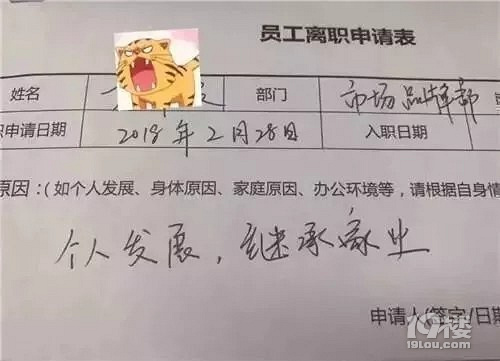 员工离职申请表
姓名 部门 市场品牌部
职申请日期 2018年2月28日 入职日期
原因:(如个人发展、身体原因、家庭原因、办公环境等，请根据自身情
个人发展，继承家业
申请人/签字/日期
19楼
19lou.com